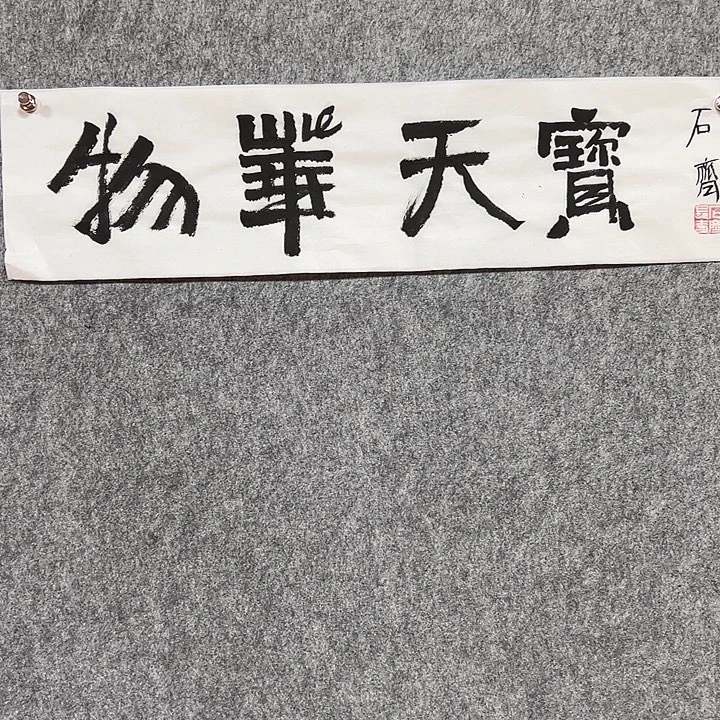 物華天寶
石齊